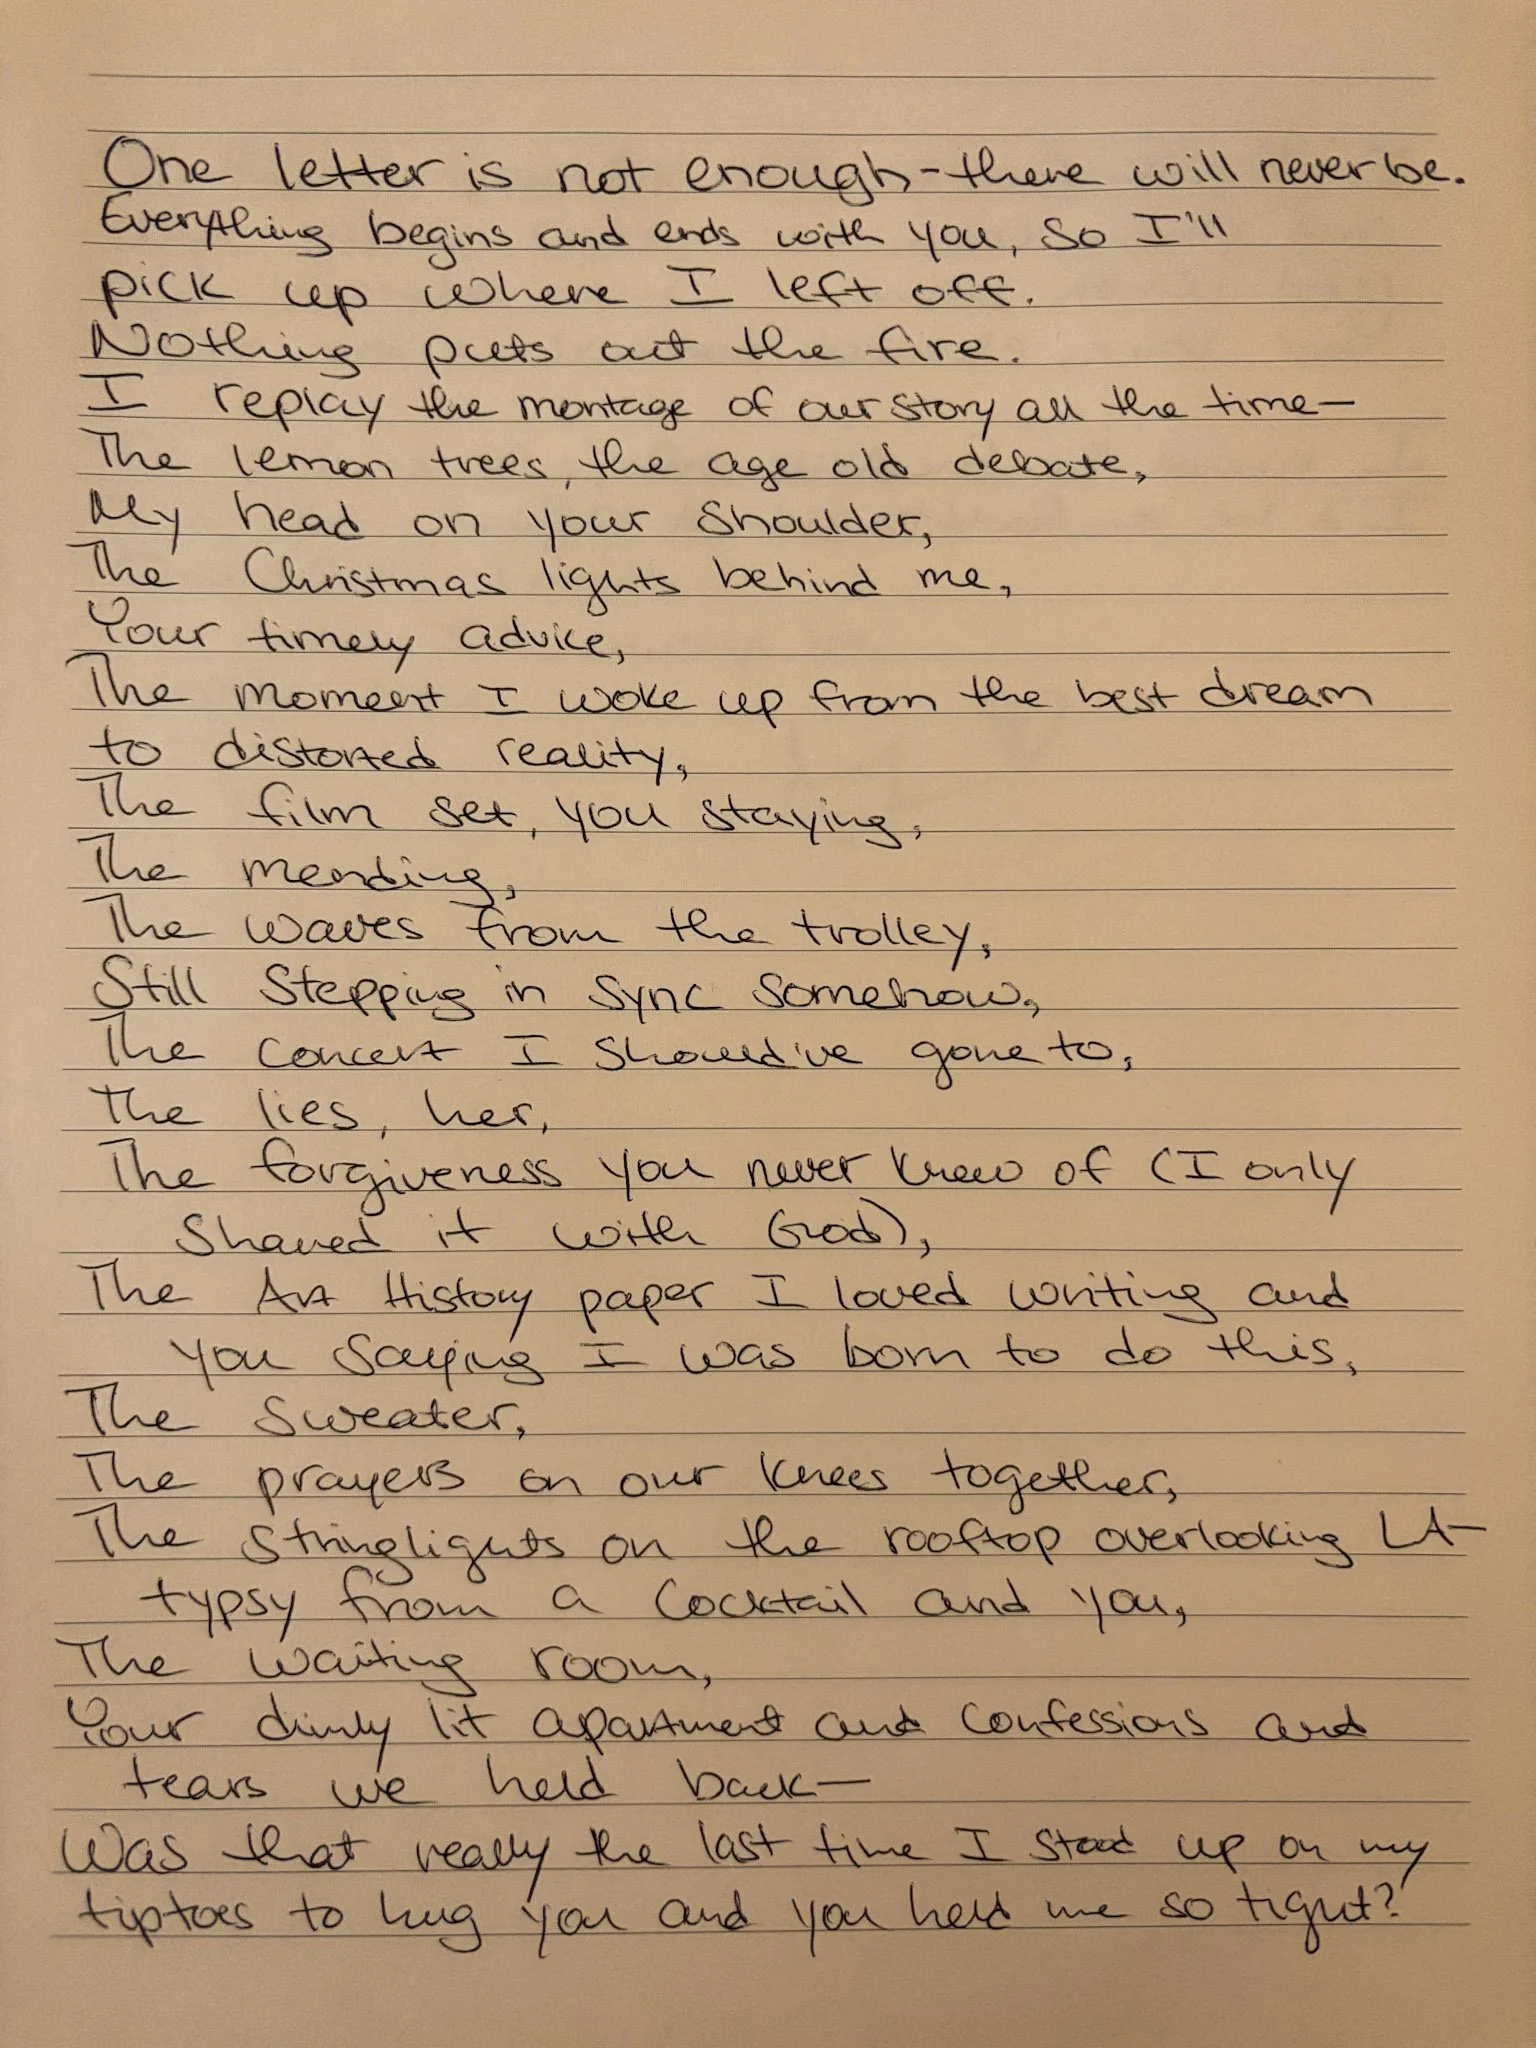 One letter is not enough - there will never be.
Everything begins and ends with you, so I'll
pick up where I left off.
Nothing puts out the fire.
I replay the montage of our story all the time—
The lemon trees, the age old debate,
My head on your shoulder,
The Christmas lights behind me,
Your timely advice,
The moment I woke up from the best dream
to distorted reality,
The film set, you staying,
The mending,
The waves from the trolley,
Still stepping in sync somehow,
The concert I should've gone to,
The lies, her,
The forgiveness you never knew of (I only
shared it with God),
The Art History paper I loved writing and
you saying I was born to do this,
The sweater,
The prayers on our knees together,
The stringlights on the rooftop overlooking LA—
typsy from a cocktail and you,
The waiting room,
Your dimly lit apartment and confessions and
tears we held back—
Was that really the last time I stood up on my
tiptoes to hug you and you held me so tight?